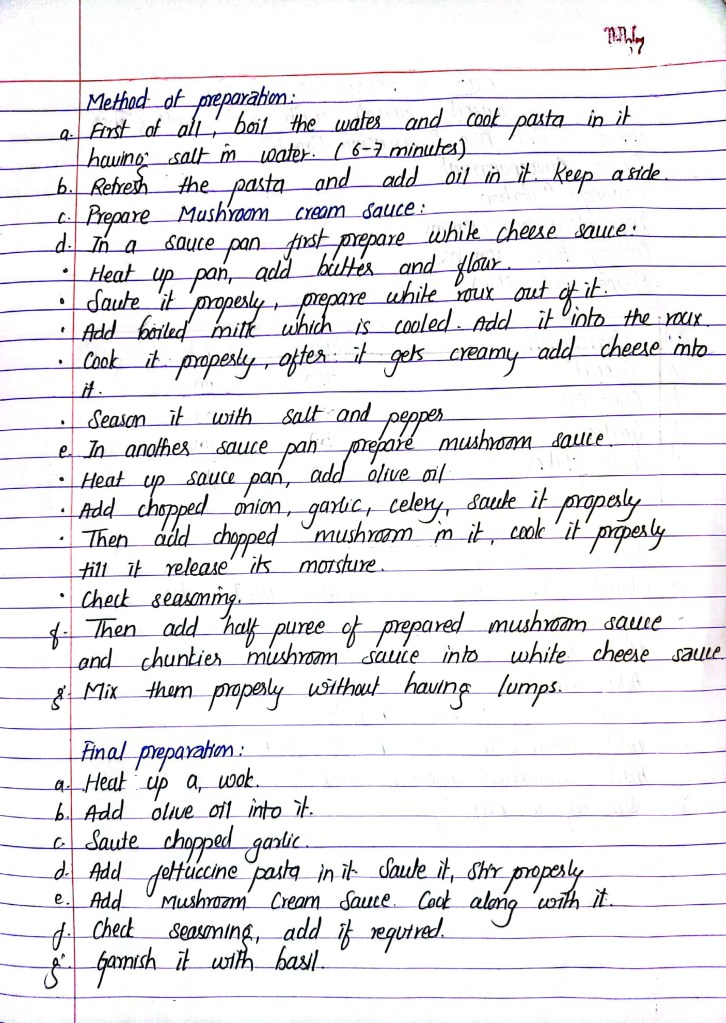 Method of preparation:
a. First of all, boil the water and cook pasta in it
having salt in water. (6-7 minutes)
b. Refresh the pasta and add oil in it. Keep aside.
c. Prepare Mushroom cream sauce:
d. In a sauce pan first prepare white cheese sauce:
• Heat up pan, add butter and flour.
• Saute it properly, prepare white roux out of it.
• Add boiled milk which is cooled. Add it into the roux.
• Cook it properly, after it gets creamy add cheese into
it.
• Season it with salt and pepper
e. In another sauce pan prepare mushroom sauce.
• Heat up sauce pan, add olive oil
• Add chopped onion, garlic, celery, saute it properly
• Then add chopped mushroom in it, cook it properly
till it release its moisture.
• Check seasoning.
f. Then add half puree of prepared mushroom sauce
and chunkier mushroom sauce into white cheese sauce
g. Mix them properly without having lumps.
Final preparation:
a. Heat up a wok.
b. Add olive oil into it.
c. Saute chopped garlic.
d. Add fettuccine pasta in it. Saute it, stir properly
e. Add Mushroom Cream Sauce. Cook along with it.
f. Check seasoning, add if required.
g. Garnish it with basil.